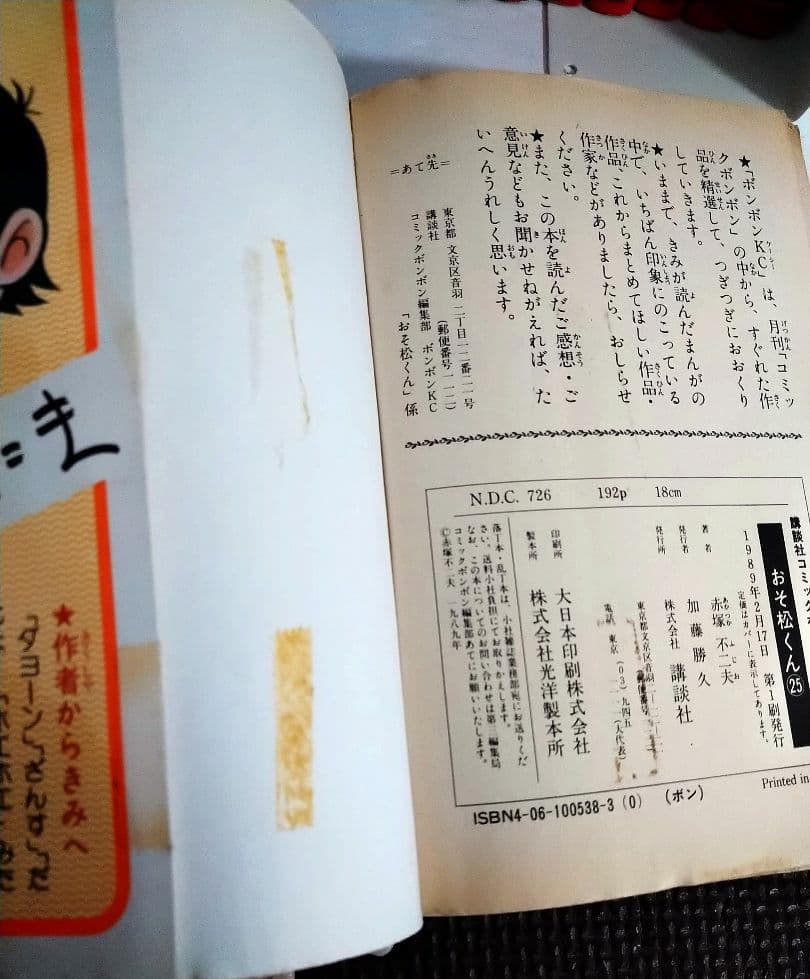 ★「ボンボンKC」は、月刊「コミッ
クボンボン」の中から、すぐれた作
品を精選して、つぎつぎにおおくり
していきます。
★いままで、きみが読んだまんがの
中で、いちばん印象にのこっている
作品、これからまとめてほしい作品・
作家などがありましたら、おしらせ
ください。
★また、この本を読んだご感想・ご
意見などもお聞かせねがえれば、た
いへんうれしく思います。
=あて先=
東京都 文京区音羽 二丁目一二番二一号
(郵便番号一一二)
講談社 コミックボンボン編集部 ボンボンKC
「おそ松くん」係
N.D.C. 726 192p 18cm
講談社コミックス
おそ松くん㉕
1989年2月17日 第1刷発行
定価はカバーに表示してあります。
著者 赤塚不二夫
発行者 加藤勝久
発行所 株式会社 講談社
東京都文京区音羽二
郵便番号
電話 東京(03)九四五
(大代表)
印刷所 大日本印刷株式会社
製本所 株式会社光洋製本所
落丁本・乱丁本は、小社雑誌業務部宛にお送りくだ
さい。送料小社負担にてお取りかえします。
なお、この本についてのお問い合わせは第三編集局
コミックボンボン編集部あてにお願いいたします。
©赤塚不二夫 一九八九年
Printed in
ISBN4-06-100538-3 (0) (ボン)
★作者からきみへ
「ダヨーン」